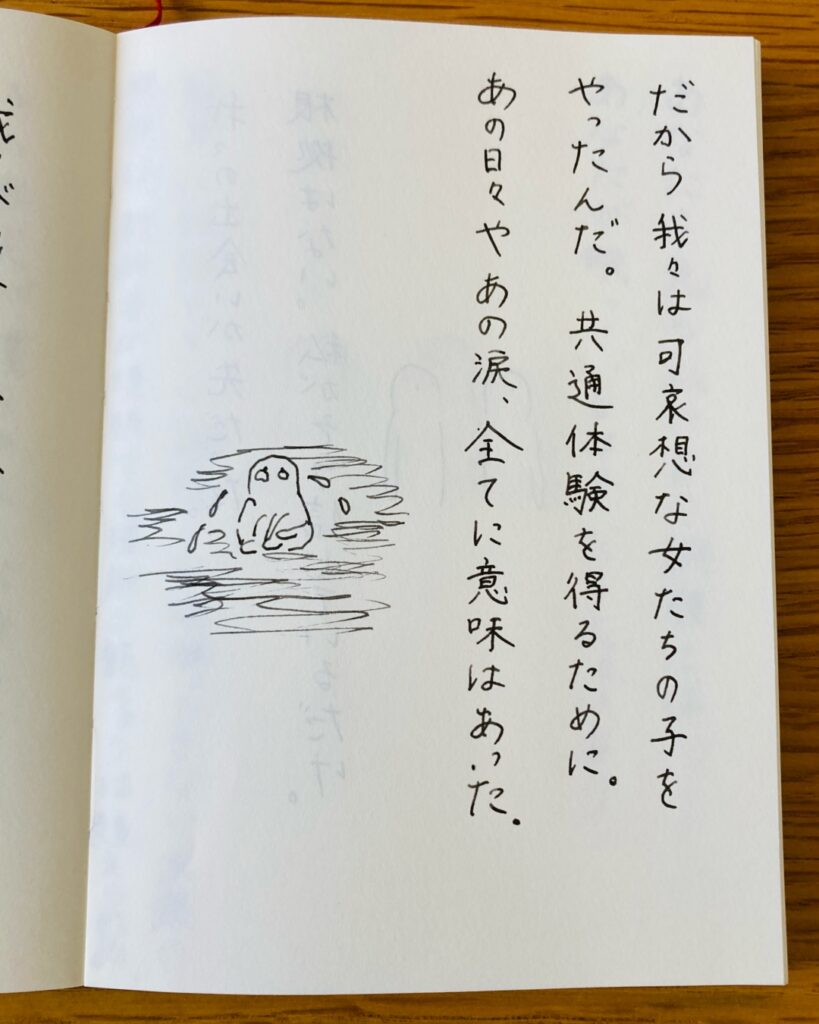 だから我々は可哀想な女たちの子を
やったんだ。共通体験を得るために。
あの日々やあの涙、全てに意味はあった。